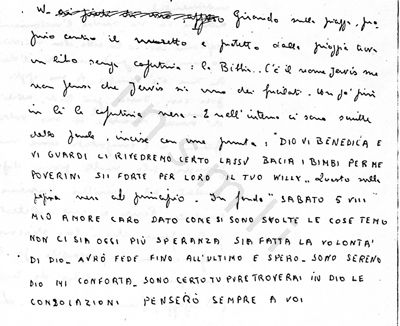 Girando sulla piazza, pro
prio contro il muretto e protetto dalla pioggia trova
un libro senza copertina: la Bibbia.. C'è il nome Jervis ma
non pensi che Jervis sia uno dei fucilati. Un po' più
in là la copertina nera. E nell'interno ci sono scritte
delle parole, incise con una punta: "DIO VI BENEDICA E
VI GUARDI CI RIVEDREMO CERTO LASSU' BACIA I BIMBI PER ME
POVERINI SII FORTE PER LORO IL TUO WILLY„ Questo sulla
pagina nera al principio. In fondo "SABATO 5 VIII
MIO AMORE CARO DATO COME SI SONO SVOLTE LE COSE TEMO
NON CI SIA OGGI PIÙ SPERANZA SIA FATTA LA VOLONTA'
DI DIO. AVRÒ FEDE FINO ALL'ULTIMO E SPERO. SONO SERENO
DIO MI CONFORTA. SONO CERTO TU PURE TROVERAI IN DIO LE
CONSOLAZIONI PENSERÒ SEMPRE A VOI
insmli